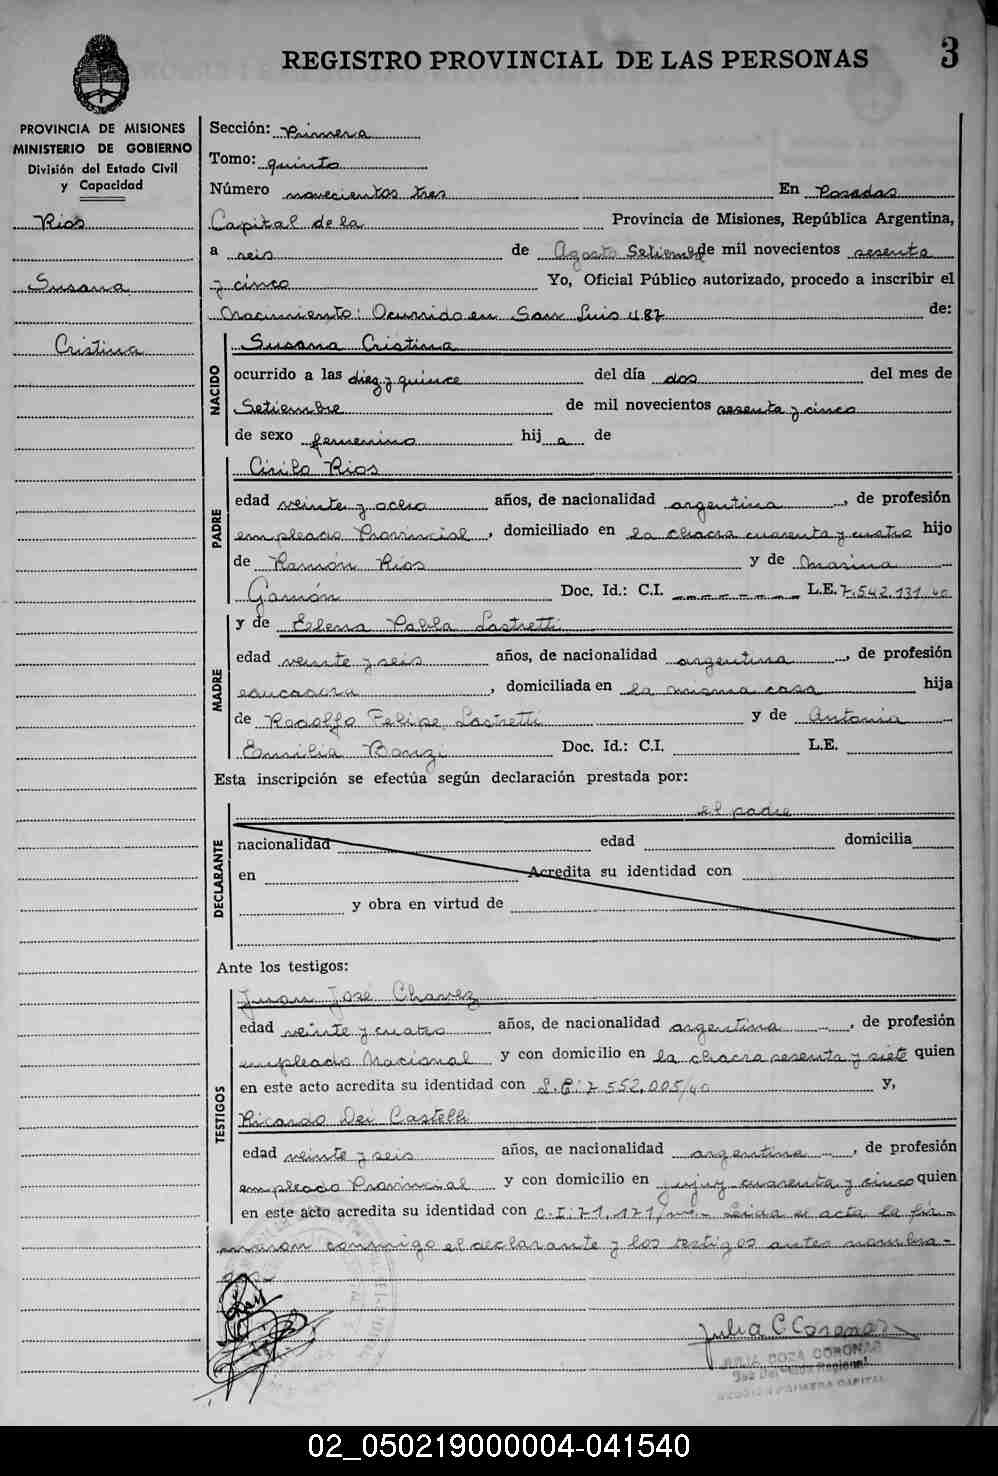 REGISTRO PROVINCIAL DE LAS PERSONAS
3
PROVINCIA DE MISIONES
MINISTERIO DE GOBIERNO
División del Estado Civil
y Capacidad
Rios
Susana
Cristina
Sección: Primera
Tomo: quinto
Número novecientos tres En Posadas
Capital de la Provincia de Misiones, República Argentina,
a seis de Agosto Setiembre de mil novecientos sesenta
y cinco Yo, Oficial Público autorizado, procedo a inscribir el
Nacimiento: Ocurrido en San Luis 487 de:
NACIDO
Susana Cristina
ocurrido a las diez y quince del día dos del mes de
Setiembre de mil novecientos sesenta y cinco
de sexo femenino hij a de
PADRE
Cirilo Rios
edad veinte y ocho años, de nacionalidad argentina, de profesión
empleado Provincial, domiciliado en la chacra cuarenta y cuatro hijo
de Ramón Rios y de Marina
Garrión Doc. Id.: C.I. L.E. 7.542.131
y de Elena Pabla Lastretti
MADRE
edad veinte y seis años, de nacionalidad argentina, de profesión
educadora, domiciliada en la misma casa hija
de Rodolfo Felipe Lastretti y de Antonia
Emilia Bonzi Doc. Id.: C.I. L.E.
Esta inscripción se efectúa según declaración prestada por:
DECLARANTE
el padre
nacionalidad edad domicilia
en Acredita su identidad con
y obra en virtud de
Ante los testigos:
TESTIGOS
Juan José Chavez
edad veinte y cuatro años, de nacionalidad argentina, de profesión
empleado Nacional y con domicilio en la chacra sesenta y siete quien
en este acto acredita su identidad con L.E: 7.552.005 y,
Ricardo Dei Castelli
edad veinte y seis años, de nacionalidad argentina, de profesión
empleado Provincial y con domicilio en Jujuy cuarenta y cinco quien
en este acto acredita su identidad con C.I: 71.171 Leida el acta la fir-
maron conmigo el declarante y los testigos antes nombra-
dos
Julia C Coronas
JULIA COZA CORONAS
SECCION PRIMERA CAPITAL
02_050219000004-041540